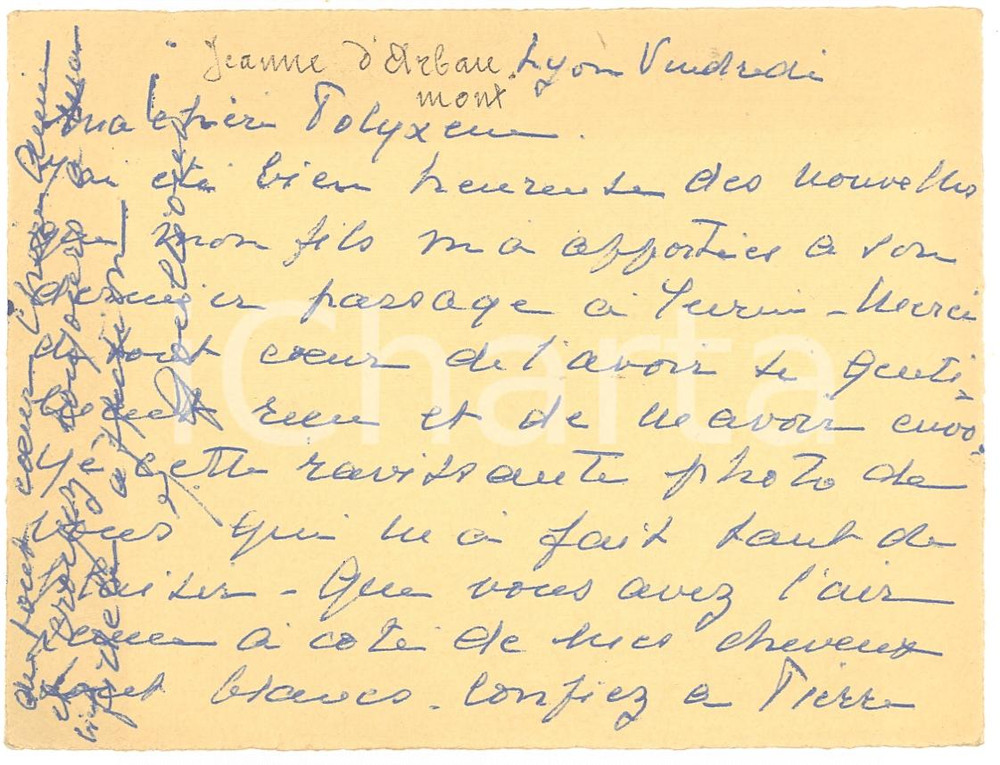 Jeanne d'Arbau
mont
Lyon Vendredi
ma chère Polyxene.
J'ai été bien heureuse des nouvelles
que mon fils m'a apportées a son
dernier passage à Turin - Merci
de tout coeur de l'avoir si genti-
ment recu et de m'avoir envo-
yé cette ravissante photo de
vous qui m'a fait tant de
plaisir - Que vous avez l'air
jeune à coté de mes cheveux
tout blancs. Confiez a Pierre
de tout coeur chère
iCharta